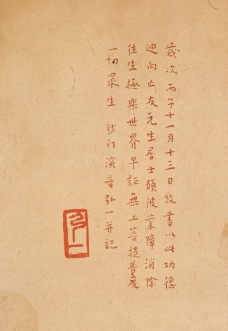 歲次丙子十一月十三日敬書以此功德
迴向亡友元生居士願彼業障消除
往生極樂世界早証無上菩提普度
一切眾生 沙门演音弘一并記
弘一